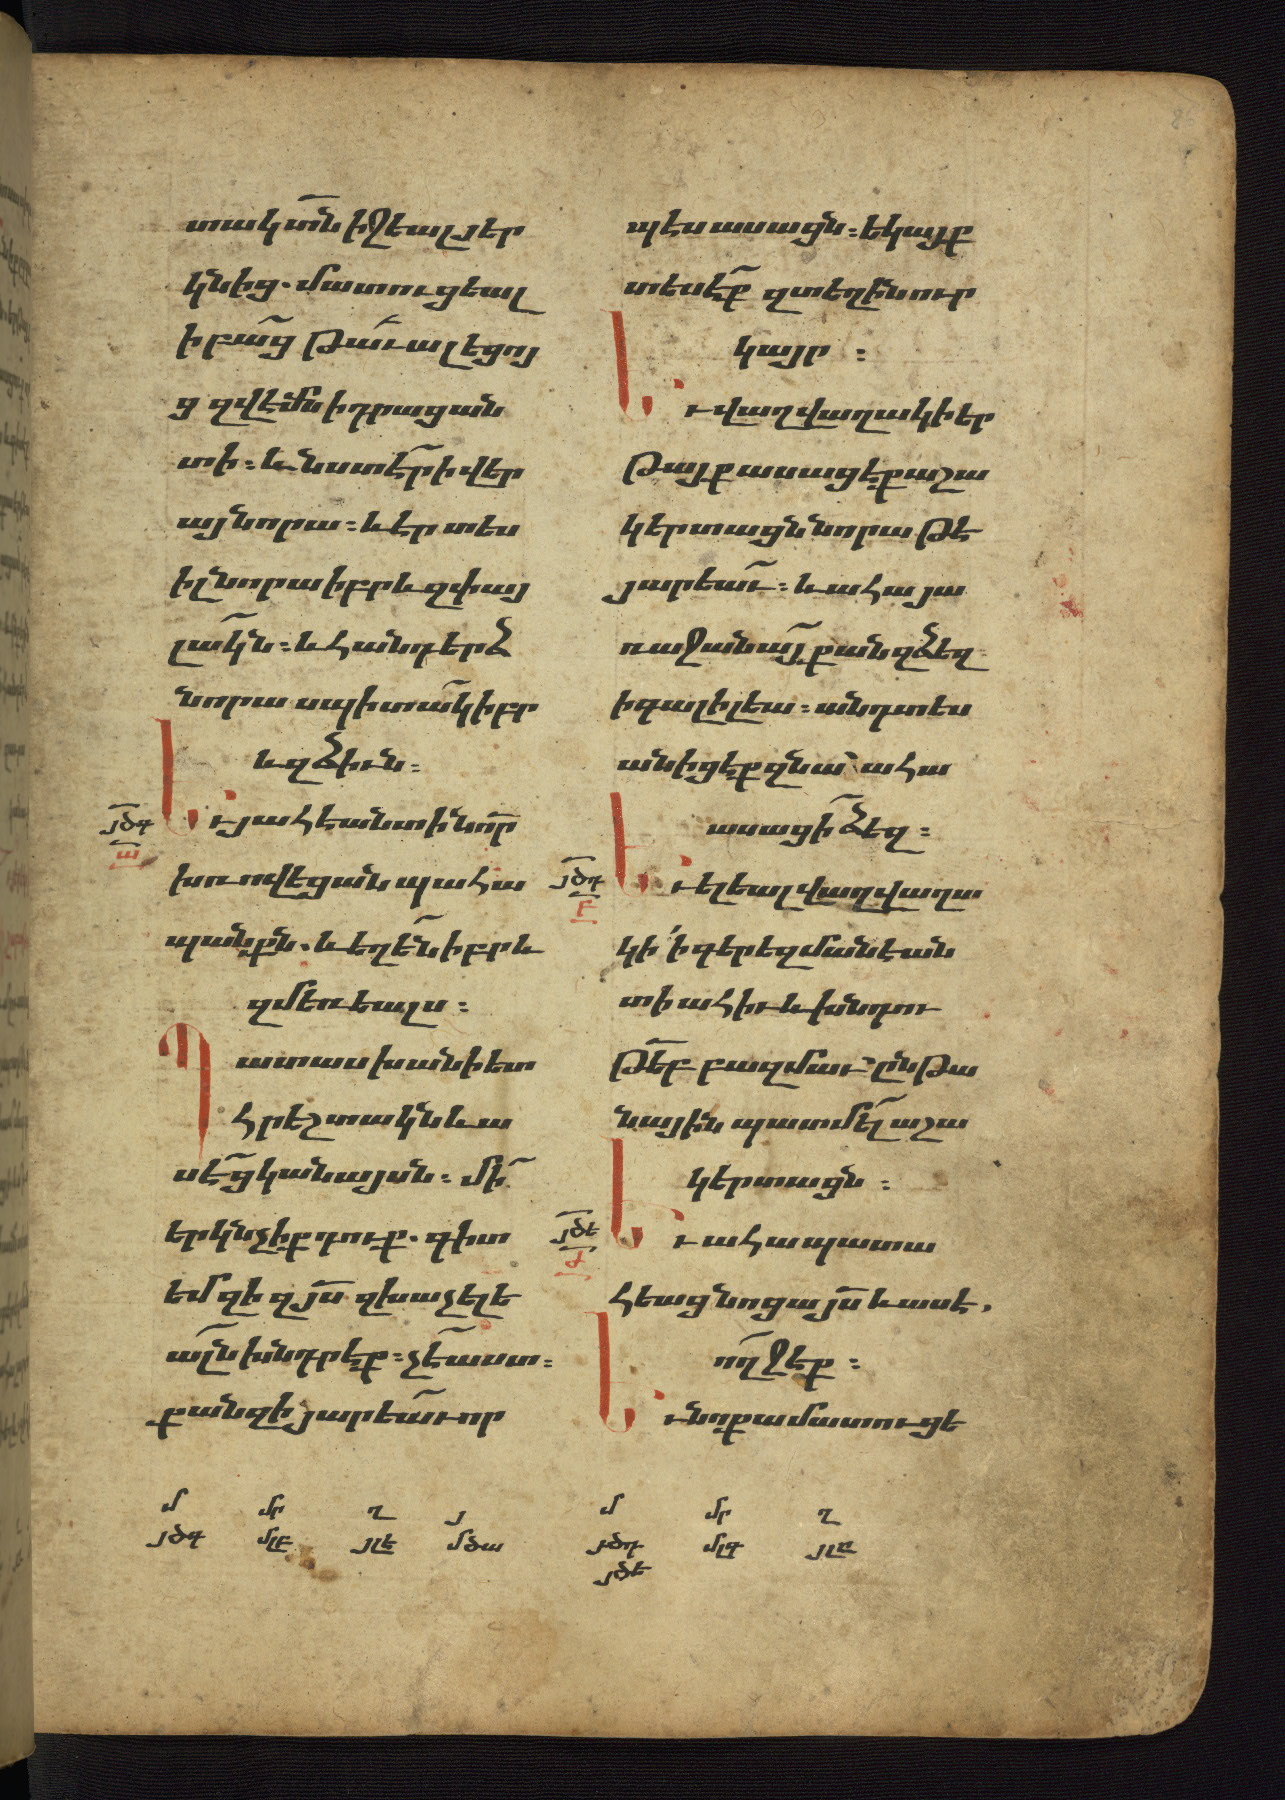 տակ տ̅ն իջեալ յեր
կնից. մատուցեալ
ի բա̅ց թա́ւալեցոյ
ց զվէմն ի դրացան
տի։ և նստէ̅ր ի վեր
այ նորա։ և էր տես
իլ նորա իբրև զփայ
լա̅կն։ և հանդերձ
նորա սպիտա̅կ իբր
և զձիւն։
Եւ յահէ անտի նո̅ր
խռովեցան պահա
պանքն. և եղե̅ն իբրև
զմեռեալս։
Պատասխանի ետ
հրեշտակն և ա
սէ̅ ց կանայսն։ մի̅
երկնչիք դուք. գիտ
եմ զի զյ̅ս զխաչելե
ա̅լն խնդրեք։ չէ̅ աստ։
քանզի յարեա̅ւ որ
պէս ասացն։ եկայք
տեսէ̅ք զտեղին ուր
կայր ։
Եւ վաղվաղակի եր
թայք ասացեք աշա
կերտացն նորա թէ
յարեա̅ւ։ և ահա յա
ռաջանա̅յ քան զձեզ
ի գալիլեա։ անդ տես
անիցեք զնա՝ ահա
ասացի̅ ձեզ։
Եւ ելեալ վաղվաղա
կի՛ ի գերեզմանէ ան
տի ահիւ և խնդու
թե̅բ բազմաւ ընթա
նային պատմե̅լ աշա
կերտացն ։
Եւ ահա պատա
հեաց նոցա յ̅ս և ասէ,
ո̅ղջ եք ։
Եւ նոքա մատուցե
յծգ
ա
յծդ
բ
յծե
ժ
մ մր ղ յ
յծգ մլբ յլէ մծա
մ մր ղ
յծդ մլգ յլը
յծե